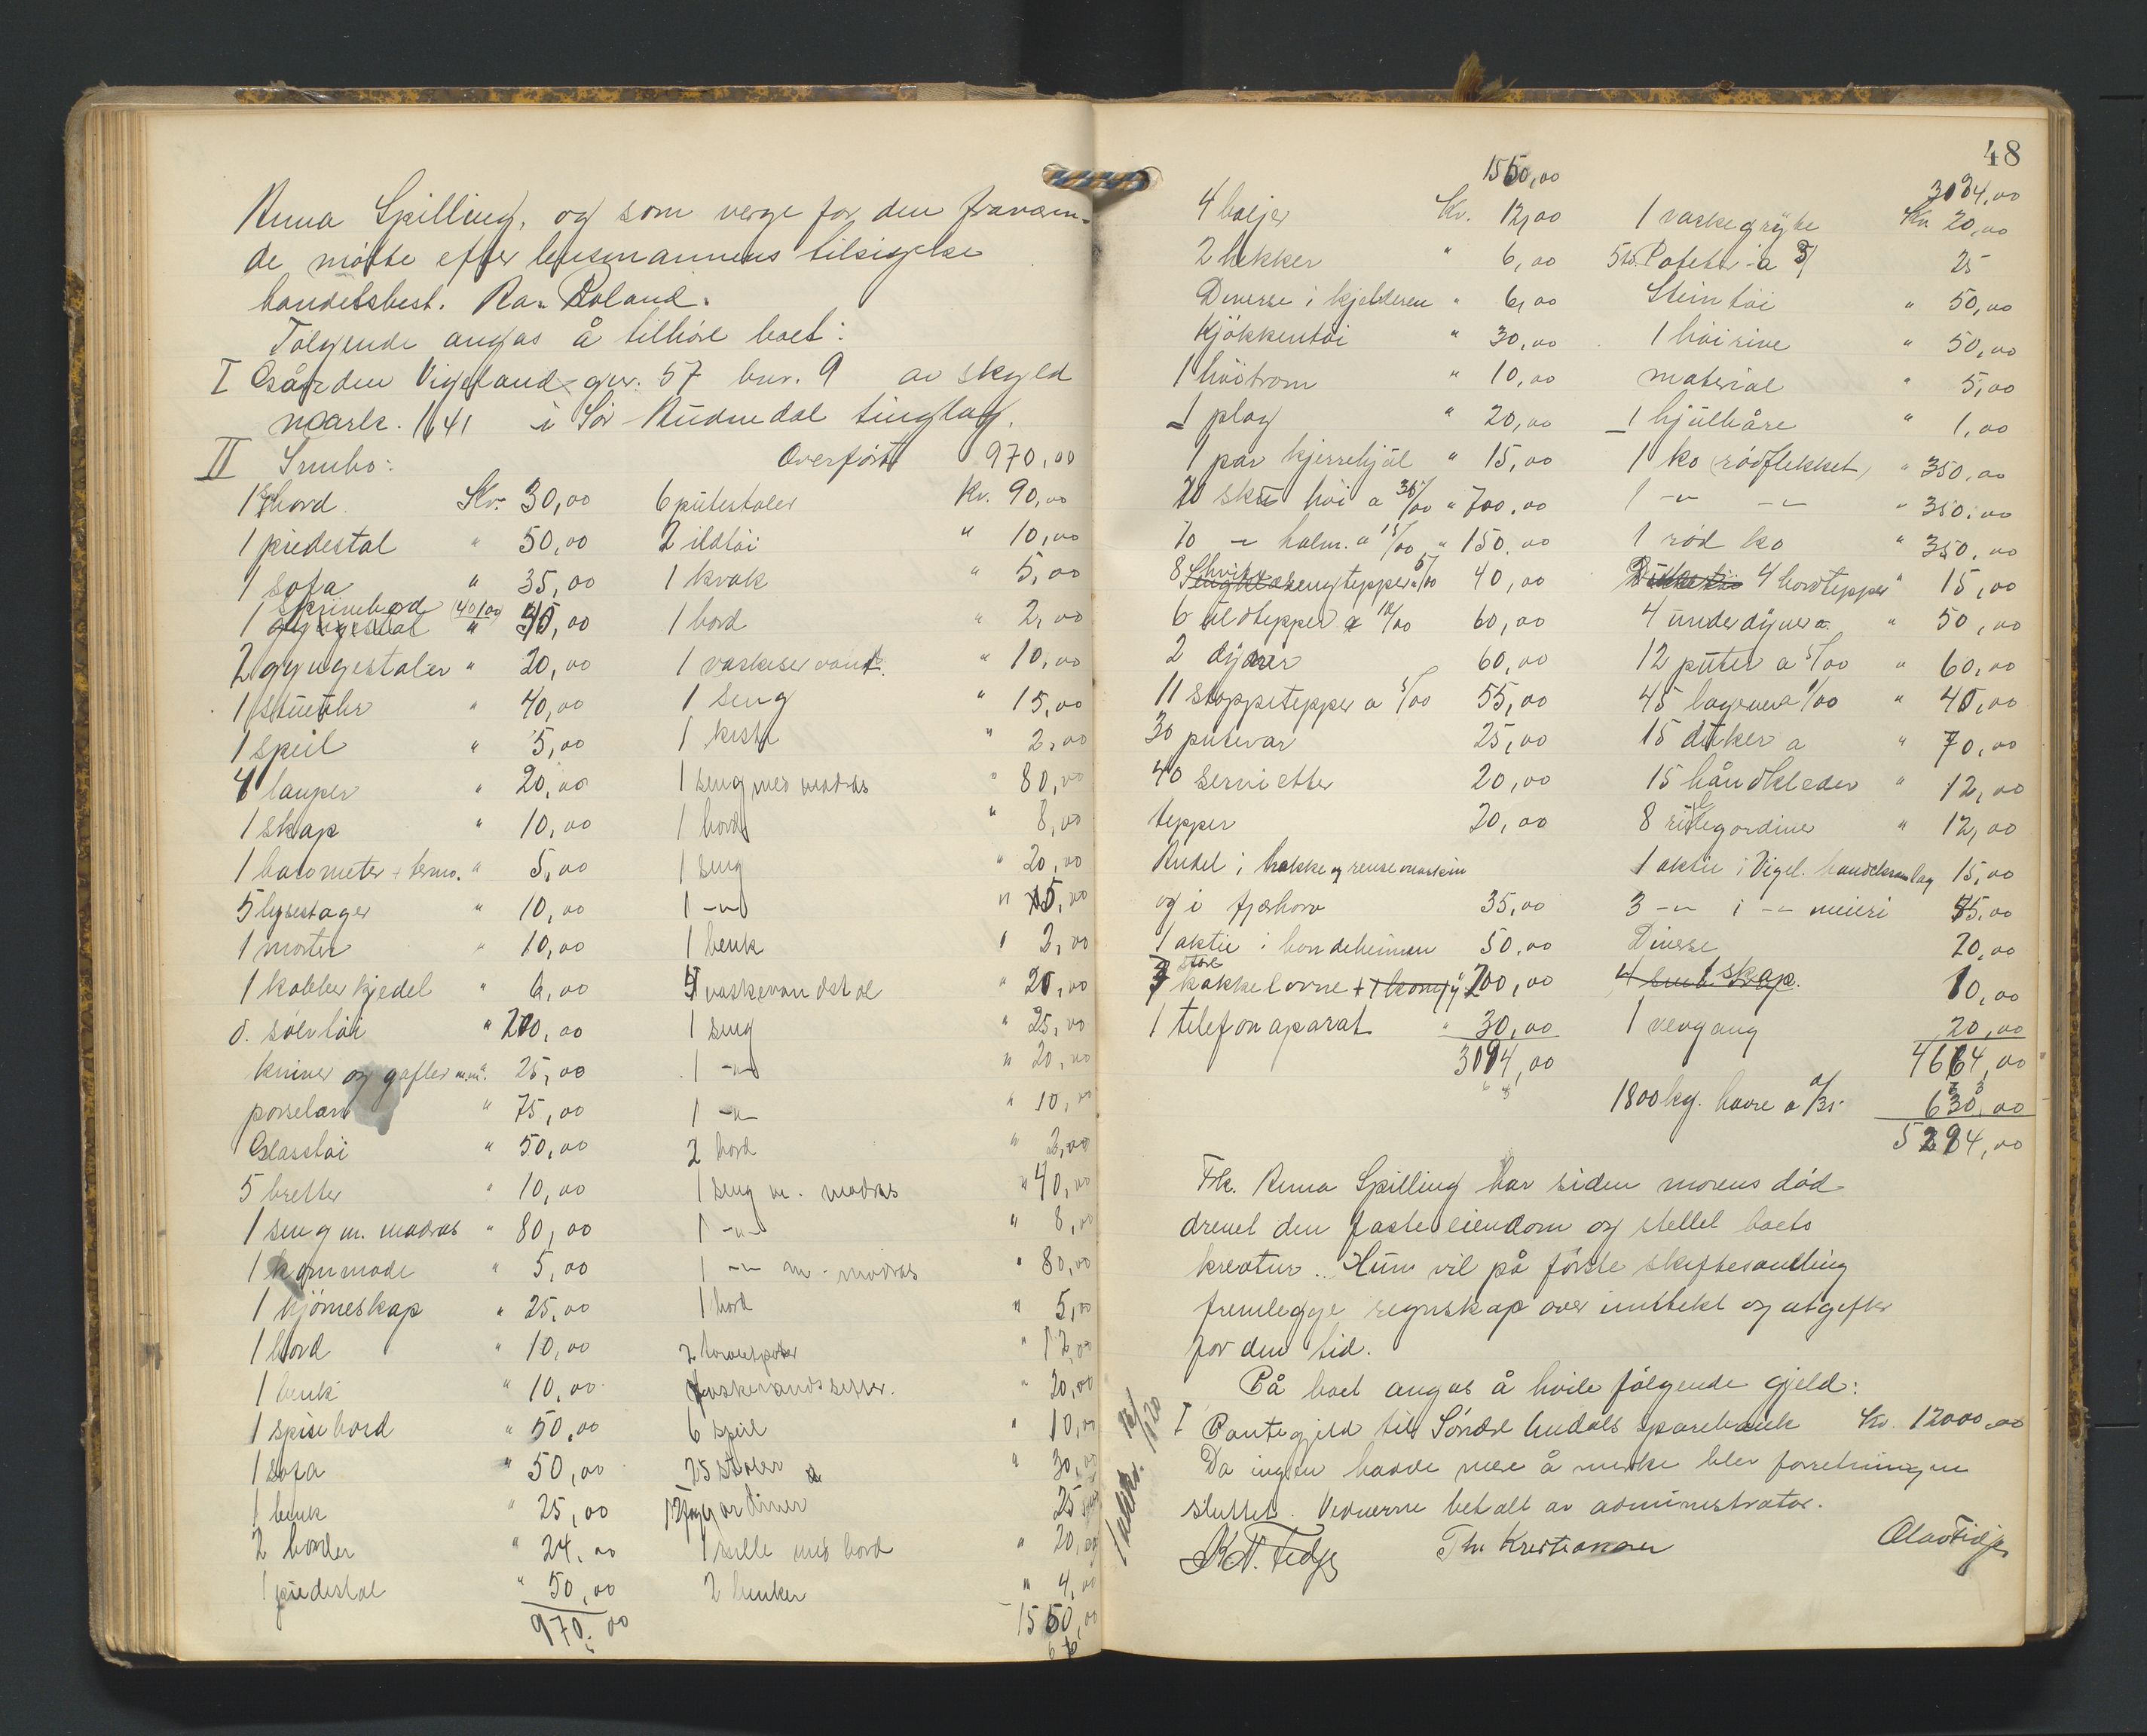 Anna Spilling, og som verge for den fraværen-
de møtte efter lensmannens tilsigelse
handelsbest. Ra. Roland.
Følgende angas å tilhøre boet:
I Gården Vigeland gnr. 57 bnr. 9 av skyld
mark. 1,41 i Sør Audnedal tinglag.
II Innbo:
1 bord Kr. 30,00
1 piedestal " 50,00
1 sofa " 35,00
1 skrivebord (40/00) " 40,00
2 gyngestoler " 20,00
1 stueuhr " 40,00
1 speil " 5,00
4 lamper " 20,00
1 skap " 10,00
1 barometer + termo. " 5,00
5 lysestager " 10,00
1 morter " 10,00
1 kobberkjedel " 6,00
d. sølvtøi " 200,00
kniver og gafler m.m. 25,00
porselæn " 75,00
Glasstøi " 50,00
5 bretter " 10,00
1 seng m. madras " 80,00
1 kommode " 5,00
1 hjørneskap " 25,00
1 bord " 10,00
1 benk " 10,00
1 spisebord " 50,00
1 sofa " 50,00
1 benk " 25,00
2 border " 24,00
1 piedestal " 50,00
970,00
Overført 970,00
6 putestoler Kr. 90,00
2 ildtøi " 10,00
1 krak " 5,00
1 bord " 2,00
1 vaskeservant " 10,00
1 seng " 15,00
1 kiste " 2,00
1 seng med madras " 80,00
1 bord " 8,00
1 seng " 20,00
1 -"- " 15,00
1 benk " 2,00
vaskevandstol " 20,00
1 seng " 25,00
1 -"- " 20,00
1 -"- " 10,00
2 bord " 2,00
1 seng m. madras " 40,00
1 -"- " 8,00
1 -"- m. madras " 80,00
1 bord " 5,00
2 " 12,00
vaskevandsetter. " 20,00
6 speil " 10,00
25 stoler " 30,00
12 fag gardiner 25
1 med bord " 20,00
2 benker " 4,00
1550,00
48
1550,00
4 baljer Kr. 12,00
2 hekker " 6,00
Diverse i kjelderen " 6,00
Kjøkkentøi " 30,00
1 " 10,00
1 plog " 20,00
1 par kjerrehjul " 15,00
20 skis høi a 35/00 " 700,00
10 -"- halm. a 15/00 " 150,00
8 hvite sengtepper a 5/00 40,00
6 uldtepper a 10/00 60,00
2 dyner 60,00
11 stoppetepper a 5/00 55,00
30 putevar 25,00
40 servietter 20,00
tepper 20,00
Andel i hakke og rensemaskin
og i fjøshorv 35,00
1 aktie i bondeheimen 50,00
3 store kakkelovne + 1 komfyr 200,00
1 telefonaparat " 30,00
3094,00
3094,00
1 vaskegryte Kr. 20,00
5 to. Poteter a 5/ 25
Stentøi " 50,00
1 høirive " 50,00
material " 5,00
1 hjulbåre " 1,00
1 ko (rødflekket) " 350,00
1 -"- -"- " 350,00
1 rød ko " 350,00
4 bordtepper " 15,00
4 underdyner a " 50,00
12 puter a 5/00 " 60,00
45 lagener a 1/00 " 45,00
15 duker a " 70,00
15 håndklæder " 12,00
8 rullegardiner " 12,00
1 aktie i Vigel. handelsamlag 15,00
3 -"- i -"- meieri 45,00
Diverse 20,00
1 skap. 10,00
1 vevgang 20,00
4664,00
1800 kg. havre a 0/35 630,00
5294,00
Frk. Anna Spilling har siden morens død
drevet den faste eiendom og stellet boets
kreatur. Hun vil på første skiftesamling
fremlegge regnskap over inntekt og utgifter
for den tid.
På boet angas å hvile følgende gjeld:
I Pantegjeld til Søndre Audals sparebank Kr. 12000,00
Da ingen hadde mere å merke blev forretningen
sluttet. Vidnerne betalt av administrator.
K. N. Fedje Th. Kristiansen Olav Fidje